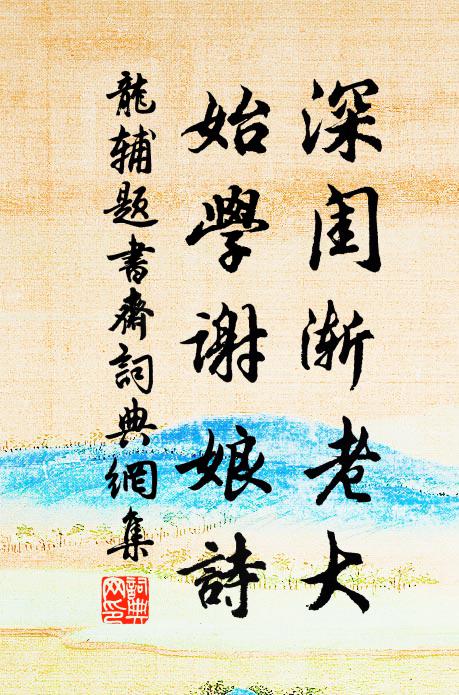 深闺渐老大
始學谢娘詩
龍辅题書齋詞典網集